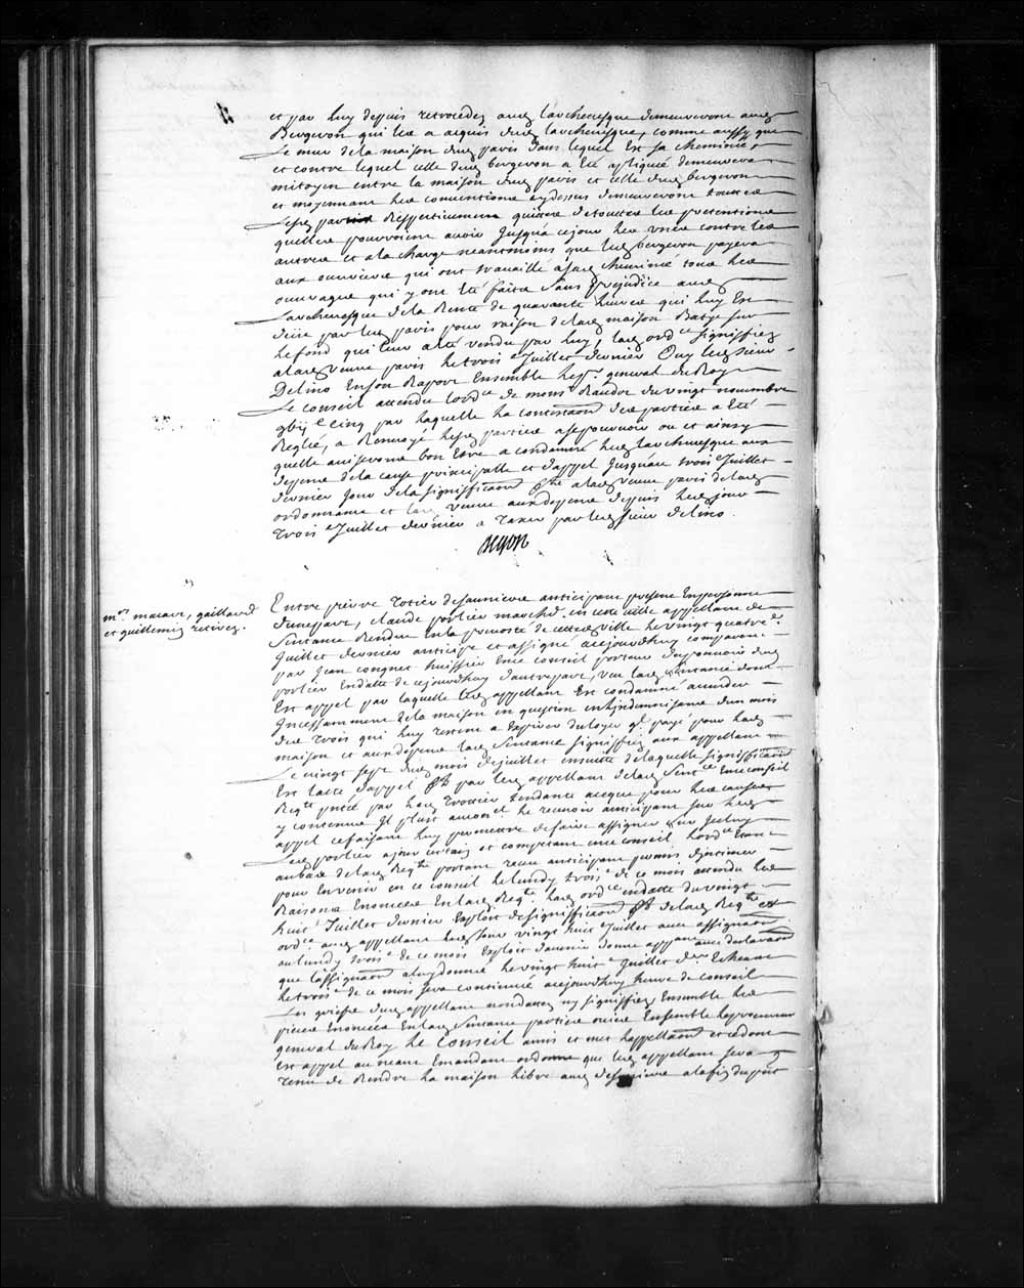 et par luy depuis retrocedez aud larchevesque demeureront aud
Bergeron qui les a acquis dud larchevesque, comme aussy que
Le mur de la maison dud paris dans lequel Est sa cheminée,
et contre lequel celle dud bergeron a Eté apliquée demeurera
mitoyen entre la maison dud paris et celle dud bergeron
et moyennant les conventions cydessus demeureront toutes
Lesd parties respectivement quittes de touttes les pretentions
quelles pourroient avoir jusqua cejour les unes contre les
autres et ala charge neantmoins que led bergeron payera
aux ouvriers qui ont travaillé a sad cheminée tous les
ouvrages qui y ont eté faits sans prejudice aud
Larchevesque de la Rente de quarante livres qui luy Est
deüe par led paris pour raison de lad maison Batye sur
le fond qui leur a eté vendu par luy, lad ordce signiffiée
alad veuve paris le trois Juillet dernier Ouy led sieur
Delino En son Raport Ensemble le pr general du Roy
Le conseil attendu lordce de monsr Raudot du vingt novembre
gbij C cinq par laquelle la contestaon des parties a Eté
Reglée, a Renvoyé lesd parties a se pourvoir ou et ainsy
quelles aviseront bon Estre a condamné led larchevesque aux
depens de la cause principalle et dappel Jusquau trois Juillet
dernier jour de la signifficaon fte alad veuve paris de lad
ordonnance et lad veuve aux depens depuis led jour
trois Juillet dernier a taxer par led sieur delino.
Begon
mrs macart, gaillard
et guillemin retirez.
Entre pierre
dunepart, claude portier marchd en cette ville appellant de
Sentence Rendue en la prevosté de cetted ville le vingt quatre
Juillet dernier anticipé et assigné aujourdhuy comparant
par Jean congnet huissier Ence conseil porteur du pouvoir dud
portier Endatte de cejourdhuy dautrepart, veu lad sentence dont
Est appel par laquelle led appellant Est condamné a vuider
Incessamment de la maison en question en lindemnisant dun mois
des trois qui luy restent a Expirer du loyer qil payé pour lad
maison et aux depens lad Sentence signiffiée aux appellant
Le vingt sept dud mois de juillet ensuitte de laquelle signifficaon
Est lacte dappel ft par led appellant de lad sentce Ence conseil
Reqte pntée par led tendante aceque pour les causes
y contenues Il plust aucond le recevoir anticipant sur led
appel cefaisant luy permettre de faire assigner sur jceluy
Led portier a jour certain et competant ence conseil, lordce Etant
aubas de lad Reqte portant recu anticipant permis dintimer
pour Envenir en ce conseil le lundy troise de ce mois attendu les
Raisons Enoncées En lad Reqte lad ordce endatte du vingt
huit Juillet dernier Exploit de signifficaon ft de lad Reqte et
ordce aud appellant led jour vingt huit Juillet avec assignaon
au lundy troise de ce mois Exploit davenir donné
que lassignaon aluy donnée le vingt huite Juillet der Echeant
le trois de ce mois sera continuée aujourdhuy heure de conseil
Les griefs dud appellant
pieces Enoncées En lad Sentence parties ouies Ensemble le procureur
general du Roy Le Conseil amis et met lappellaon et cedont
Est appel au neant Emandant ordonne que led appellant sera
tenu de Rendre la maison libre aud a la fin du pnt